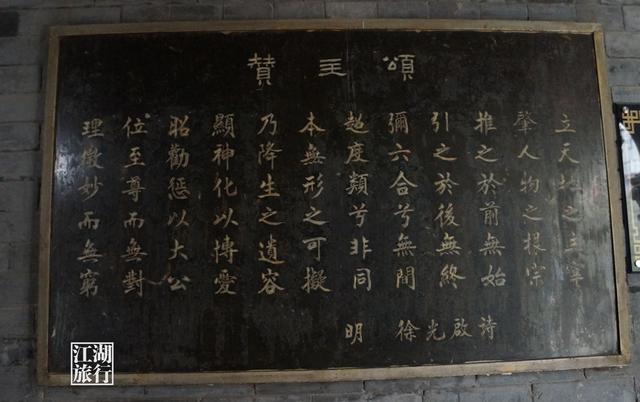 頌主贊
立天地之主宰
肇人物之根宗
推之於前無始
引之於後無終
彌六合兮無間
超度類兮非同
本無形之可擬
乃降生之遺容
顯神化以博愛
昭勸懲以大公
位至尊而無對
理微妙而無窮
明 徐光啟詩
江湖旅行